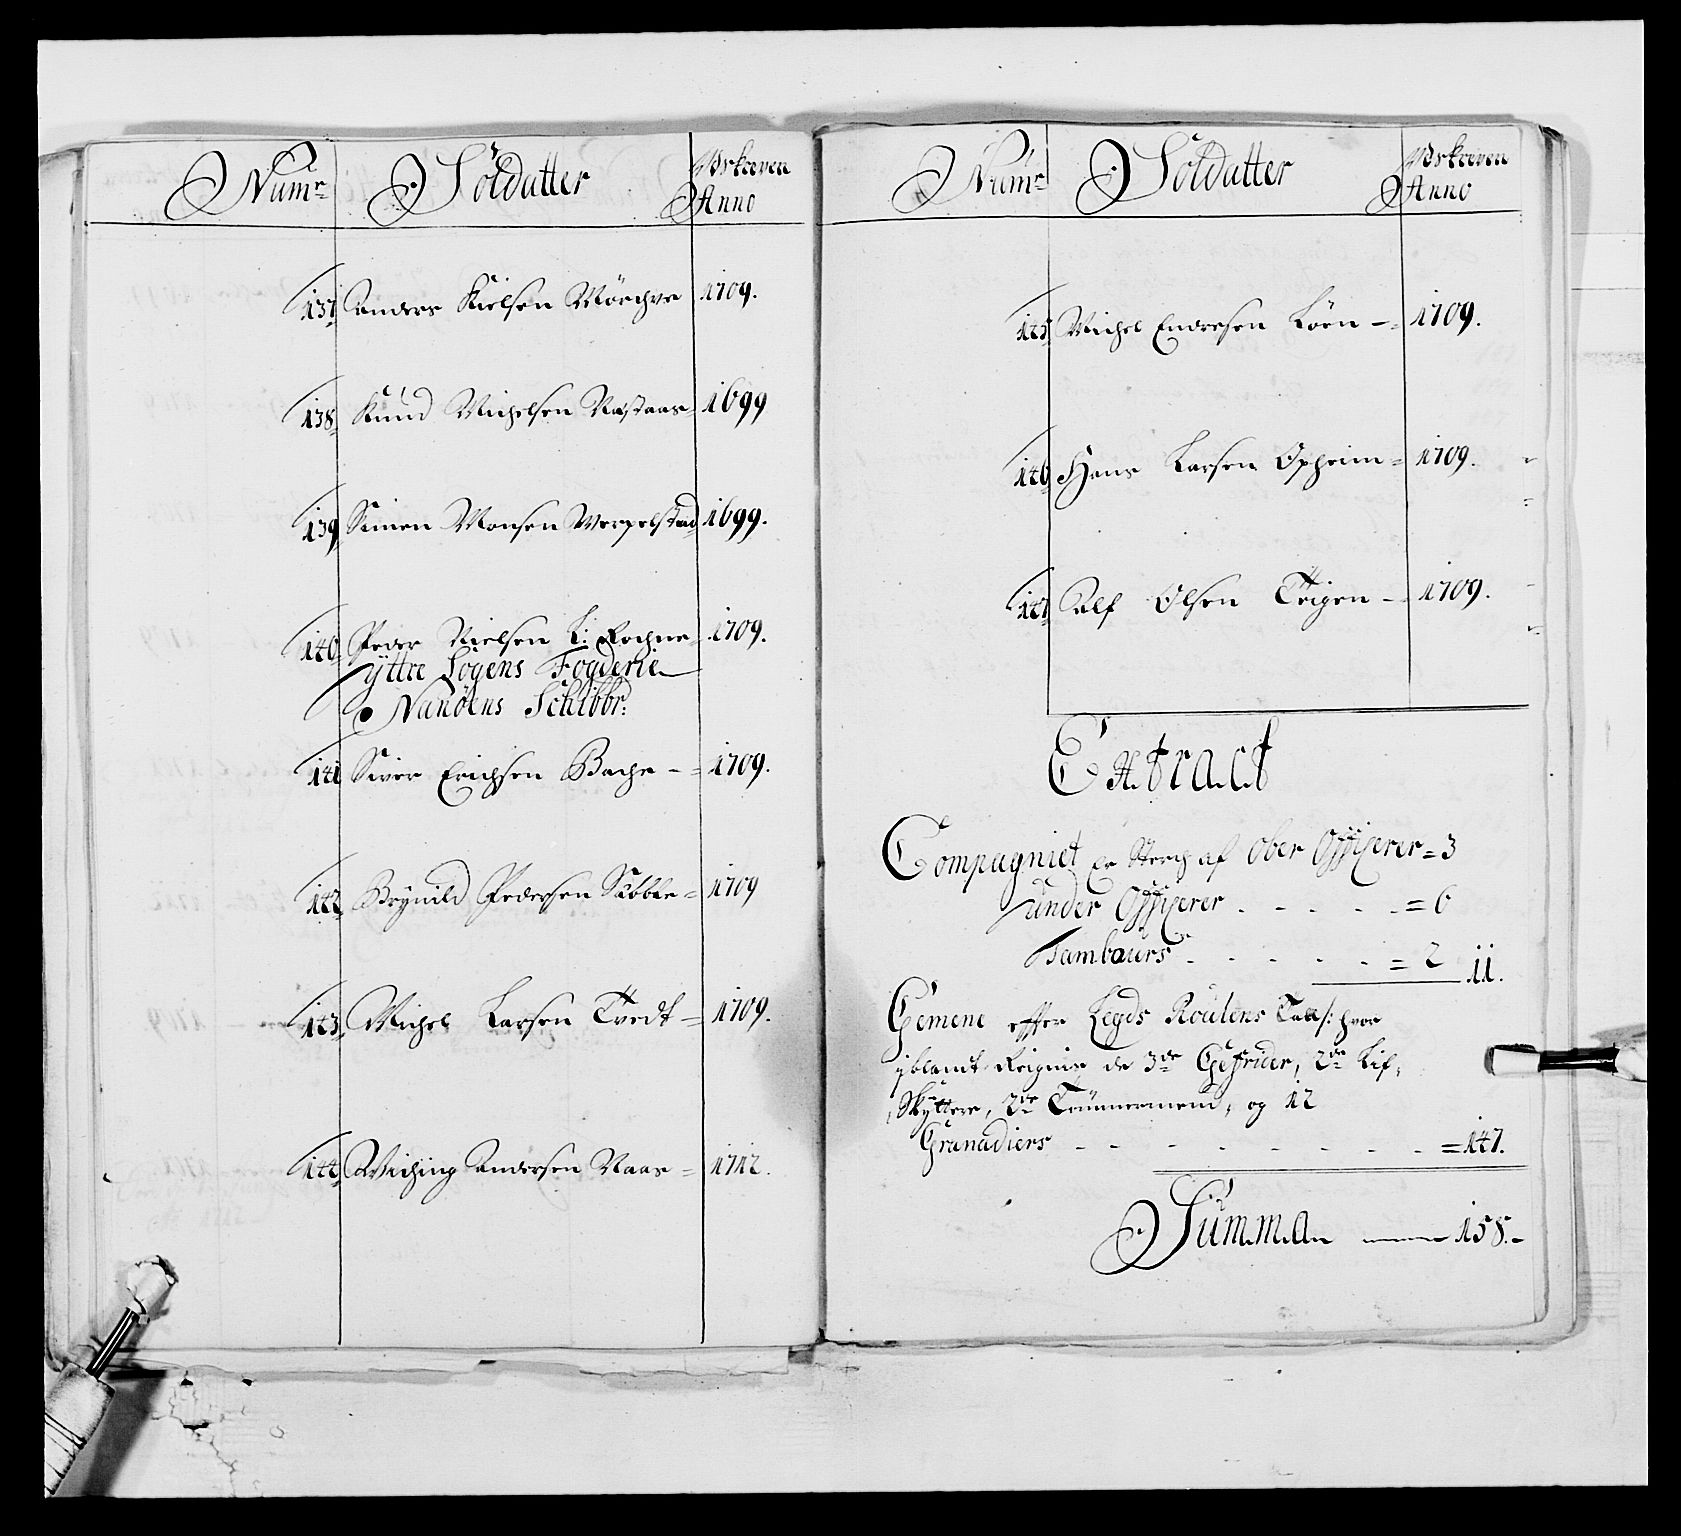 Numr. Soldatter Udskreven Anno
137. Anders Nielsen Mörchve 1709.
138. Knud Michelsen Nastaas 1699
139. Simen Monsen Werpelstad 1699.
140. Peder Nielsen L: Rochne 1709.
ÿttre Sogens Fogderie
Nundens Schibbr:
141 Siver Erichsen Bache - = 1709.
142. Brynild Pedersen Sæbbe = 1709
143. Michel Larsen Tvedt = 1709.
144. Wiching Andersen Naas = 1712.
Numr. Soldatter Udskreven Anno
145. Michel Endresen Löen - = 1709.
146. Hans Larsen Opheim = 1709.
147. Alf Olsen Teigen - 1709.
Extract
Compagniet er Sterch af Ober Officerer = 3
Under Officerer . - - - - = 6
Tambours - - - - - = 2 11.
Gemene effter Legds Roulens Tall /: hvor
iblandt Reignis de 3de Gefrider, 2de Lif,
Skÿttere, 2de Tömmermend, og 12
Granadiers - - - - - - - - = 147.
Summa 158.-